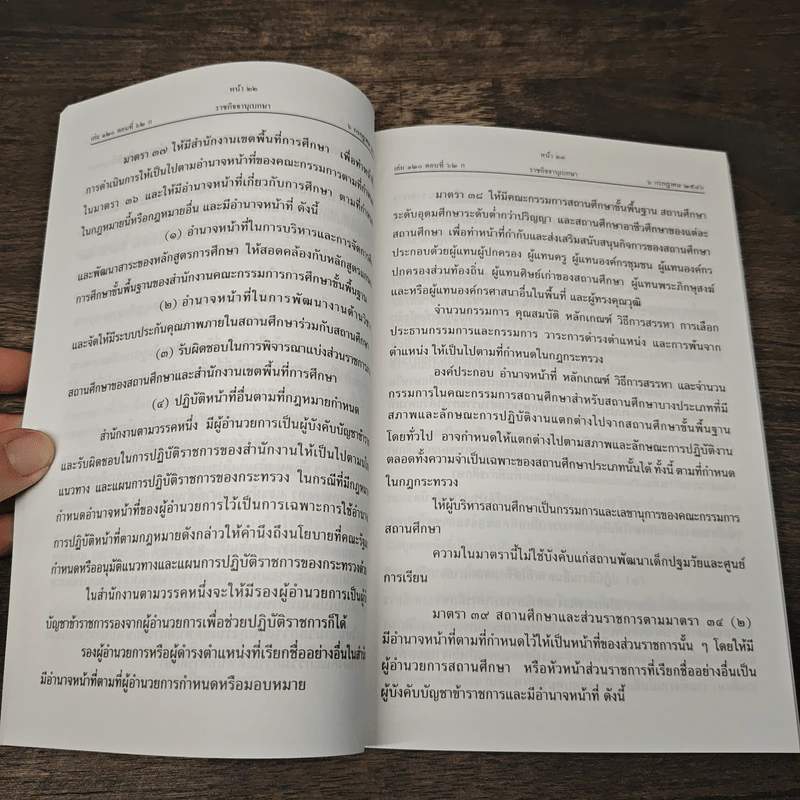 หน้า ๒๒
เล่ม ๑๒๐ ตอนที่ ๖๒ ก
ราชกิจจานุเบกษา
๖ กรกฎาคม
มาตรา ๓๗ ให้มีสำนักงานเขตพื้นที่การศึกษา เพื่อทำหน้าที่
การดำเนินการให้เป็นไปตามอำนาจหน้าที่ของคณะกรรมการตามที่กำหนด
ในมาตรา ๓๖ และให้มีอำนาจหน้าที่เกี่ยวกับการศึกษา ตามที่กำหนด
ในกฎหมายนี้หรือกฎหมายอื่น และมีอำนาจหน้าที่ ดังนี้
(๑) อำนาจหน้าที่ในการบริหารและการจัดการ
และพัฒนาสาระของหลักสูตรการศึกษา ให้สอดคล้องกับหลักสูตร
การศึกษาขั้นพื้นฐานของสำนักงานคณะกรรมการการศึกษาขั้นพื้นฐาน
(๒) อำนาจหน้าที่ในการพัฒนางานด้าน
และจัดให้มีระบบประกันคุณภาพภายในสถานศึกษาร่วมกับสถานศึกษา
(๓) รับผิดชอบในการพิจารณาแบ่งส่วนราชการ
สถานศึกษาของสถานศึกษาและสำนักงานเขตพื้นที่การศึกษา
(๔) ปฏิบัติหน้าที่อื่นตามที่กฎหมายกำหนด
สำนักงานตามวรรคหนึ่ง มีผู้อำนวยการเป็นผู้บังคับบัญชาข้าราชการ
และรับผิดชอบในการปฏิบัติราชการของสำนักงานให้เป็นไปตาม
แนวทาง และแผนการปฏิบัติราชการของกระทรวง ในกรณีที่มีกฎหมาย
กำหนดอำนาจหน้าที่ของผู้อำนวยการไว้เป็นการเฉพาะการใช้อำนาจ
การปฏิบัติหน้าที่ตามกฎหมายดังกล่าวให้คำนึงถึงนโยบายที่คณะรัฐ
กำหนดหรืออนุมัติแนวทางและแผนการปฏิบัติราชการของกระทรวงด้วย
ในสำนักงานตามวรรคหนึ่งจะให้มีรองผู้อำนวยการเป็นผู้
บัญชาข้าราชการรองจากผู้อำนวยการเพื่อช่วยปฏิบัติราชการก็ได้
รองผู้อำนวยการหรือผู้ดำรงตำแหน่งที่เรียกชื่ออย่างอื่นใน
มีอำนาจหน้าที่ตามที่ผู้อำนวยการกำหนดหรือมอบหมาย
หน้า ๒๓
เล่ม ๑๒๐ ตอนที่ ๖๒ ก
ราชกิจจานุเบกษา
๖ กรกฎาคม ๒๕๔๖
มาตรา ๓๘ ให้มีคณะกรรมการสถานศึกษาขั้นพื้นฐาน สถานศึกษา
ระดับอุดมศึกษาระดับต่ำกว่าปริญญา และสถานศึกษาอาชีวศึกษาของแต่ละ
สถานศึกษา เพื่อทำหน้าที่กำกับและส่งเสริมสนับสนุนกิจการของสถานศึกษา
ประกอบด้วยผู้แทนผู้ปกครอง ผู้แทนครู ผู้แทนองค์กรชุมชน ผู้แทนองค์กร
ปกครองส่วนท้องถิ่น ผู้แทนศิษย์เก่าของสถานศึกษา ผู้แทนพระภิกษุสงฆ์
และหรือผู้แทนองค์กรศาสนาอื่นในพื้นที่ และผู้ทรงคุณวุฒิ
จำนวนกรรมการ คุณสมบัติ หลักเกณฑ์ วิธีการสรรหา การเลือก
ประธานกรรมการและกรรมการ วาระการดำรงตำแหน่ง และการพ้นจาก
ตำแหน่ง ให้เป็นไปตามที่กำหนดในกฎกระทรวง
องค์ประกอบ อำนาจหน้าที่ หลักเกณฑ์ วิธีการสรรหา และจำนวน
กรรมการในคณะกรรมการสถานศึกษาสำหรับสถานศึกษาบางประเภทที่มี
สภาพและลักษณะการปฏิบัติงานแตกต่างไปจากสถานศึกษาขั้นพื้นฐาน
โดยทั่วไป อาจกำหนดให้แตกต่างไปตามสภาพและลักษณะการปฏิบัติงาน
ตลอดทั้งความจำเป็นเฉพาะของสถานศึกษาประเภทนั้นได้ ทั้งนี้ ตามที่กำหนด
ในกฎกระทรวง
ให้ผู้บริหารสถานศึกษาเป็นกรรมการและเลขานุการของคณะกรรมการ
สถานศึกษา
ความในมาตรานี้ไม่ใช้บังคับแก่สถานพัฒนาเด็กปฐมวัยและศูนย์
การเรียน
มาตรา ๓๙ สถานศึกษาและส่วนราชการตามมาตรา ๓๔ (๒)
มีอำนาจหน้าที่ตามที่กำหนดไว้ให้เป็นหน้าที่ของส่วนราชการนั้น ๆ โดยให้มี
ผู้อำนวยการสถานศึกษา หรือหัวหน้าส่วนราชการที่เรียกชื่ออย่างอื่นเป็น
ผู้บังคับบัญชาข้าราชการและมีอำนาจหน้าที่ ดังนี้